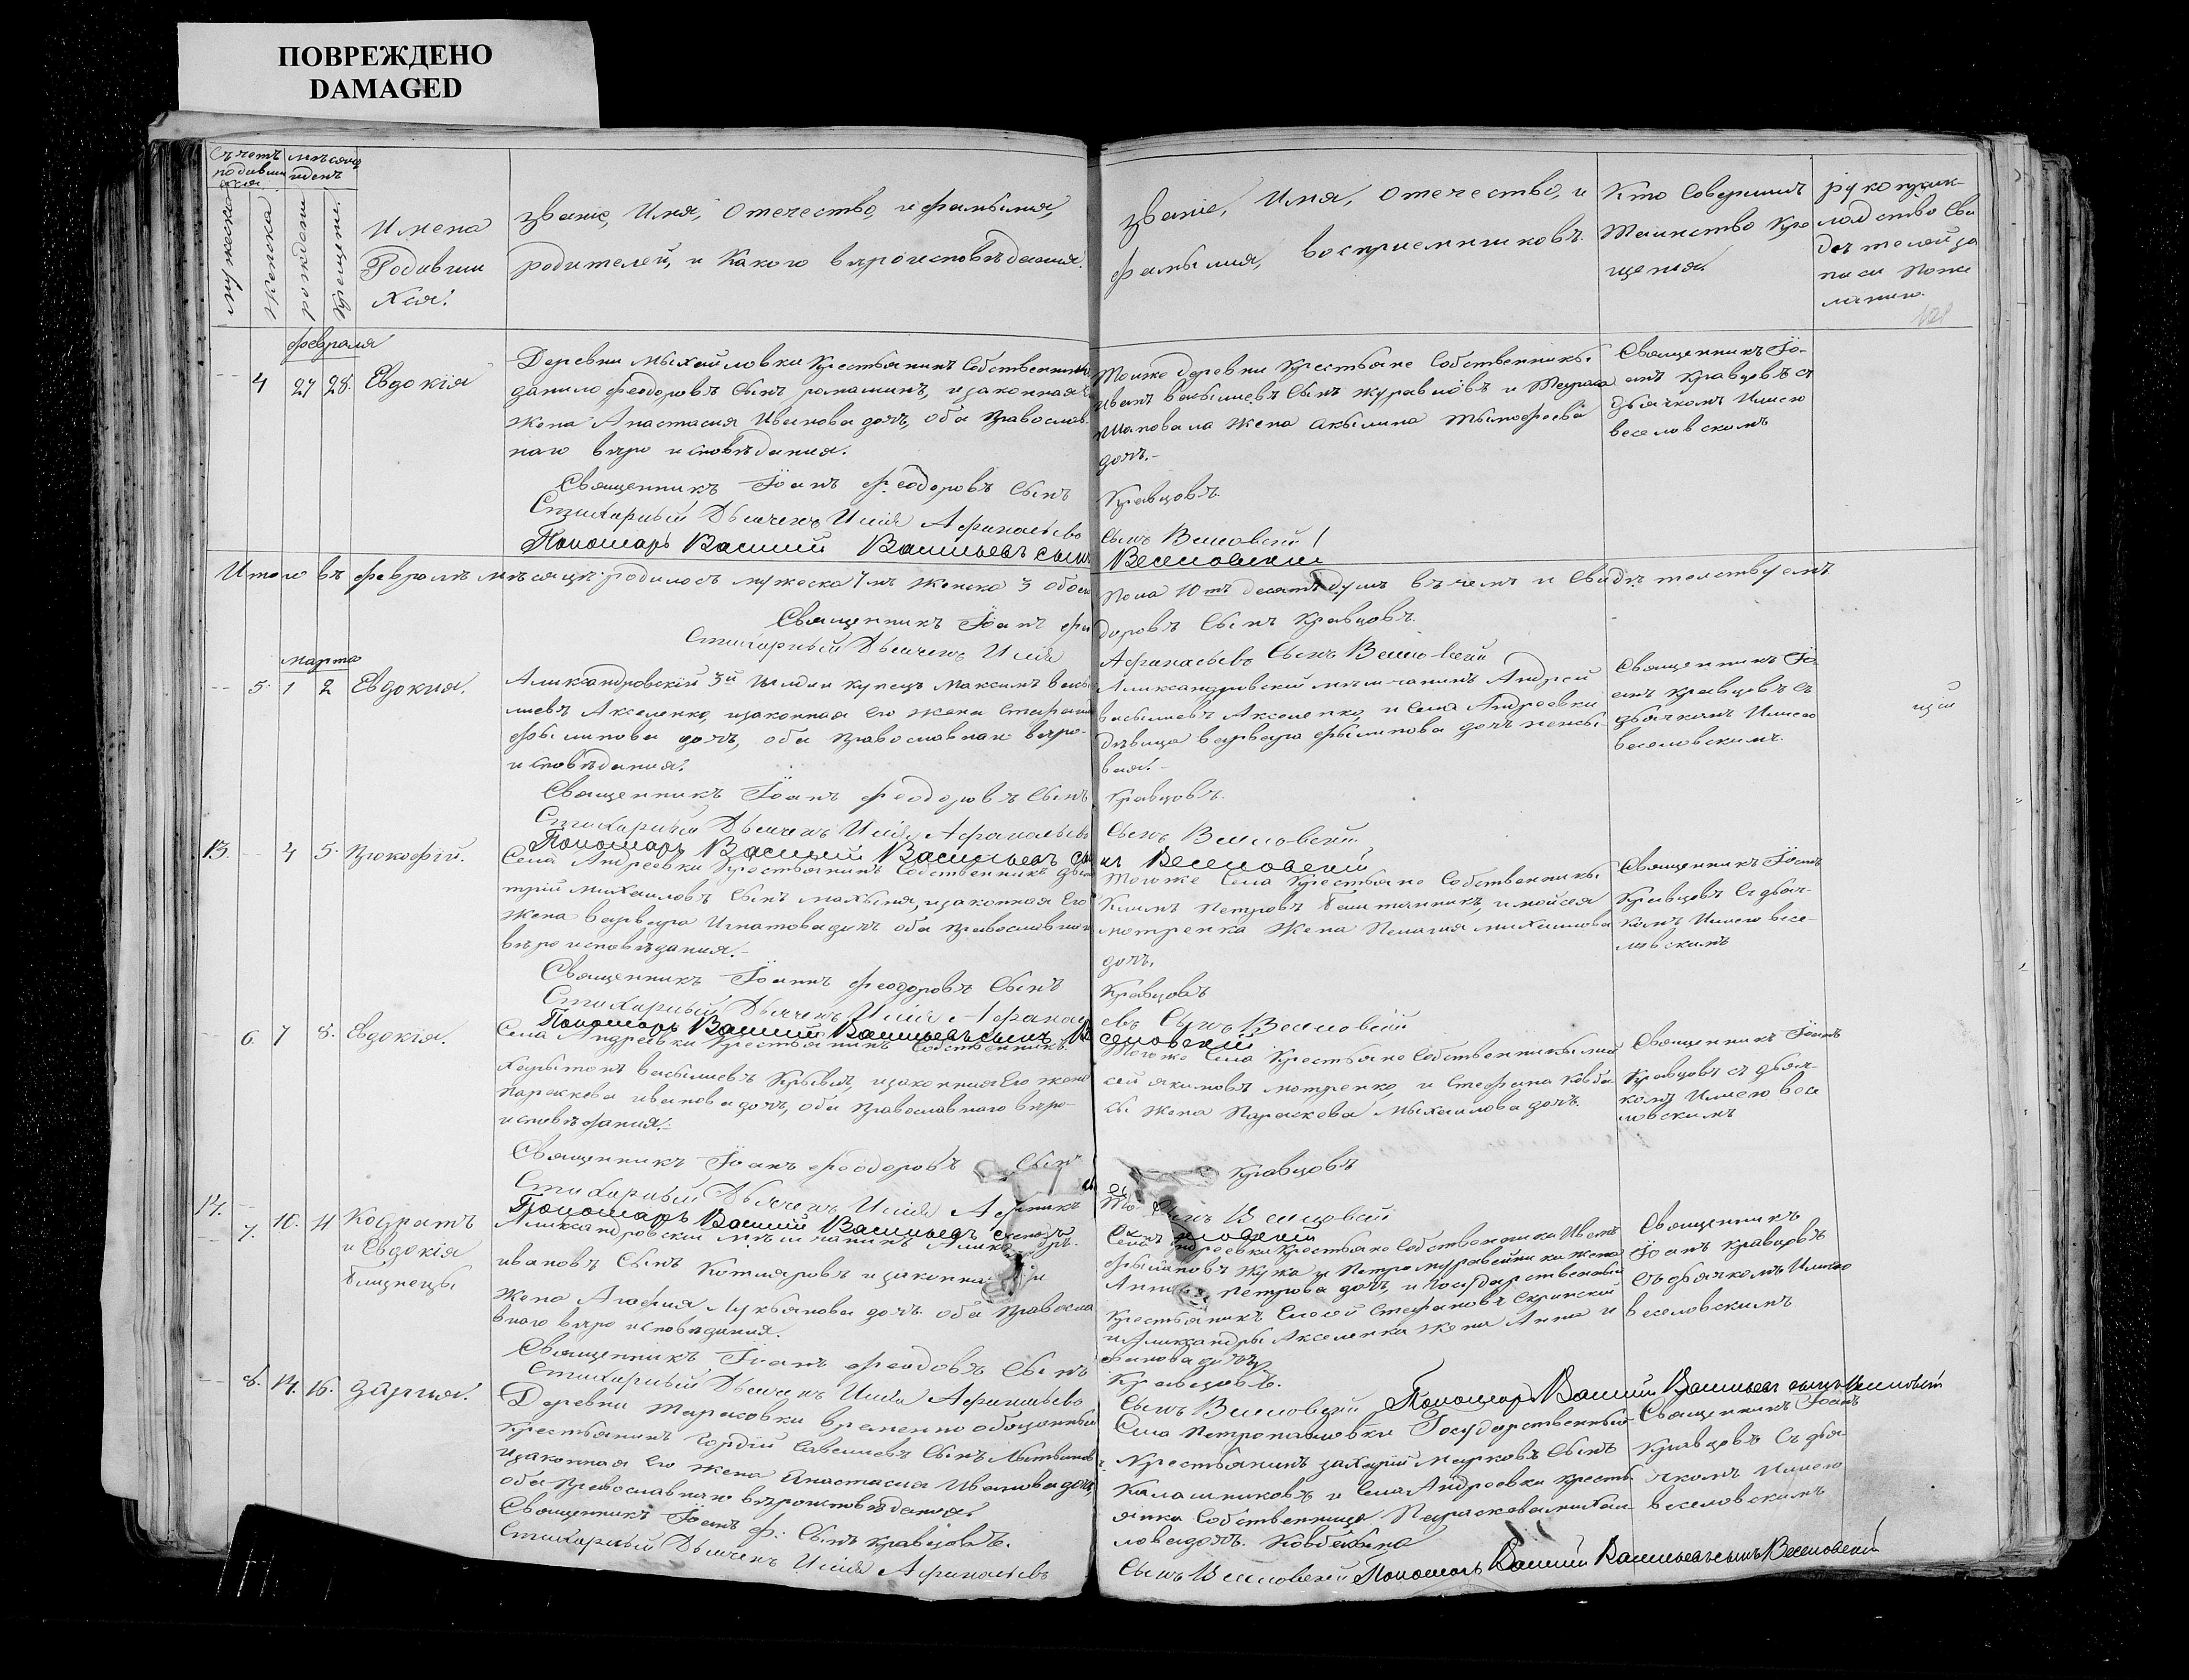 ПОВРЕЖДЕНО
DAMAGED
Имена
Родивши
хся.
Званіе, Имя, Отечество, и фамылия,
родителей, и Какого вѣроисповѣдания.
Званіе, Имя, Отечество, и
фамылия, восприемниковъ.
Кто Совершилъ
Таинство Кре
щения.
рукоприк-
ладство Сви
детелей за
писи Поже
ланию.
февраля
4 27 28. Евдокія
Деревни Мыхайловки Крестьянинъ Собственникъ
данило Феодоровъ Сынъ ромашинъ, изаконная
Жена Анастасия Иванова дочъ, оба Православ-
наго вѣро исповѣдания.
Священникъ Іоанъ Феодоровъ Сынъ
Стихарный Дьячекъ Илія Афанасьевъ
Пономарь Василий Васильевъ сынъ
Тойже деревни Крестьяне Собственникы
иванъ васылиевъ Сынъ журавлёвъ и
шаповала жена акылина тымофеева
дочь.-
Кравцовъ.
Сынъ Веселовский
Веселовский
Священникъ Іо-
анъ Кравцовъ съ
дьячкомъ Илиею
веселовскимъ
Итого въ февралѣ мѣсяцѣ родилось мужеска 7мъ женска 3 обоего
Священникъ Іоанъ Фео
Стихарный Дьячекъ Илія
Пола 10ть десять душъ въ чемъ и Свидѣтелствуемъ
доровъ Сынъ Кравцовъ.
Афанасьевъ Сынъ Веселовский
марта
5. 1 2 Евдокия.
Александровскій 3й гилдіи купецъ Максимъ васы
лиевъ Акселенко, изаконная его жена Стефанида
фылипова дочъ, оба Православнаго вѣро-
исповѣдания.
Священникъ Іоанъ Феодоровъ Сынъ
Стихарный Дьячекъ Илія Афанасьевъ
Пономарь Василий Васильевъ сы
Александровский мещанинъ Андрей
васылиевъ Акселенко, и Села Андреевки
дѣвица варвара фылипова дочъ
Кравцовъ.
Сынъ Веселовский
нъ Веселовский
Священникъ Іо-
анъ кравцовъ съ
дьячкомъ Илиею
веселовскимъ.
13. 4 5. Прокофій.
Села Андреевки Крестьянинъ Собственникъ дмы
трий Михаиловъ Сынъ махыня, изаконная Его
Жена варвара Игнатова дочъ оба Православнаго
вѣро исповѣдания.-
Священникъ Іоанъ Феодоровъ Сынъ
Стихарный Дьячекъ Илія Афанась
Пономарь Василий Васильевъ сынъ Ве
Тогоже Села Крестьяне Собственникы
Климъ Петровъ Баштанникъ, и мойсея
мотренка жена Пелагия михаилова
дочъ.
Кравцовъ
евъ Сынъ Веселовский
селовский
Священникъ Іоанъ
Кравцовъ Съ дьяч-
комъ Илиею весе-
ловскимъ
6. 7 8. Евдокія.
Села Андреевки Крестьянинъ Собственникъ
Харытонъ васылиевъ Крывый, изаконная Его жена
Параскева иванова дочъ, оба Православнаго вѣро-
исповѣдания.-
Священникъ Іоанъ Феодоровъ Сынъ
Стихарный Дьячекъ Илія Афанас
Пономарь Василий Васильевъ сынъ
Тогоже Села Крестьяне Собственникы мой
сей якимовъ мотренко, и Стефана Ковба-
сы жена Параскева Мыхаилова дочъ.
Кравцовъ
Сынъ Веселовский
Священникъ Іоанъ
Кравцовъ съ дьяч-
комъ Илиею весе
ловскимъ
14. 7. 10. 11 Кодратъ
и Евдокія
близнецы
Александровский мещанинъ
ивановъ Сынъ Котляровъ изаконная
Жена Агафия Лукьянова дочъ. оба Правосла
внаго вѣро исповѣдания.
Священникъ Іоанъ Феодовъ Сынъ
Стихарный Дьячекъ Илія Афанасьевъ
Крестьяне Собственники Иванъ
жужа и Петра муравейника жена
Петрова дочъ, и Государственный
Крестьянинъ Стефановъ
и Александры Акселенка жена Анна
Кравцовъ.
Сынъ Веселовский Пономарь Василий Васильевъ сынъ Веселовский
Священникъ
Іоанъ кравцовъ
съ дьячкомъ Илиею
веселовскимъ
8. 14. 16. дария.
Деревни Тарасовки временно обязанный
Крестьянинъ Гордій Савелиевъ Сынъ
изаконная Его жена Анастасия Иванова дочъ,
оба Православнаго вѣроисповѣдания.
Священникъ Іоанъ Ф: Сынъ Кравцовъ.
Стихарный Дьячекъ Илія Афанасьевъ
Села Петропавловки Государственный
Крестьянинъ захарий Марковъ Сынъ
Калашниковъ и Села Андреевки кресть
янка Собственница Параскева михаи
лова дочъ. Ковбасина
Сынъ Веселовский Пономарь Василий Васильевъ сынъ Веселовский
Священникъ Іоанъ
Кравцовъ Съ дья
чкомъ Илиею
веселовскимъ